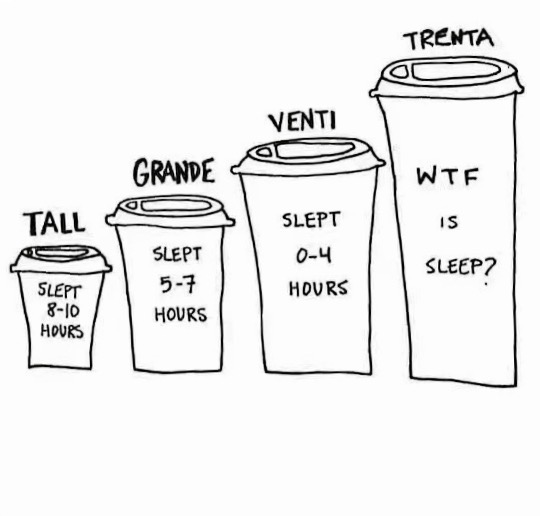 TALL
SLEPT
8-10
HOURS
GRANDE
SLEPT
5-7
HOURS
VENTI
SLEPT
0-4
HOURS
TRENTA
WTF
IS
SLEEP?